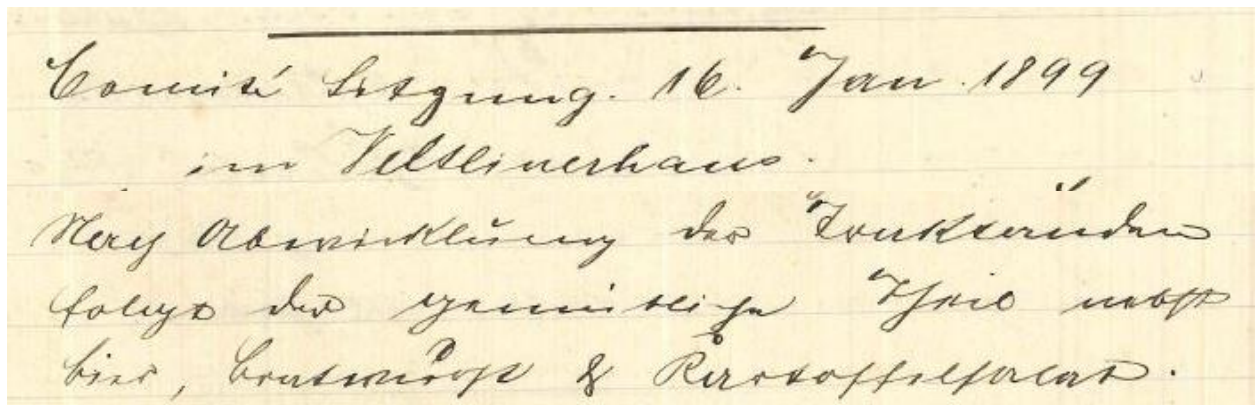 Comité Sitzung. 16. Jan. 1899
im Veltlinerhaus.
Nach Abwicklung der Traktanden
folgt der gemütliche Theil nebst
bier, bratwürst & Kartoffelsalat.